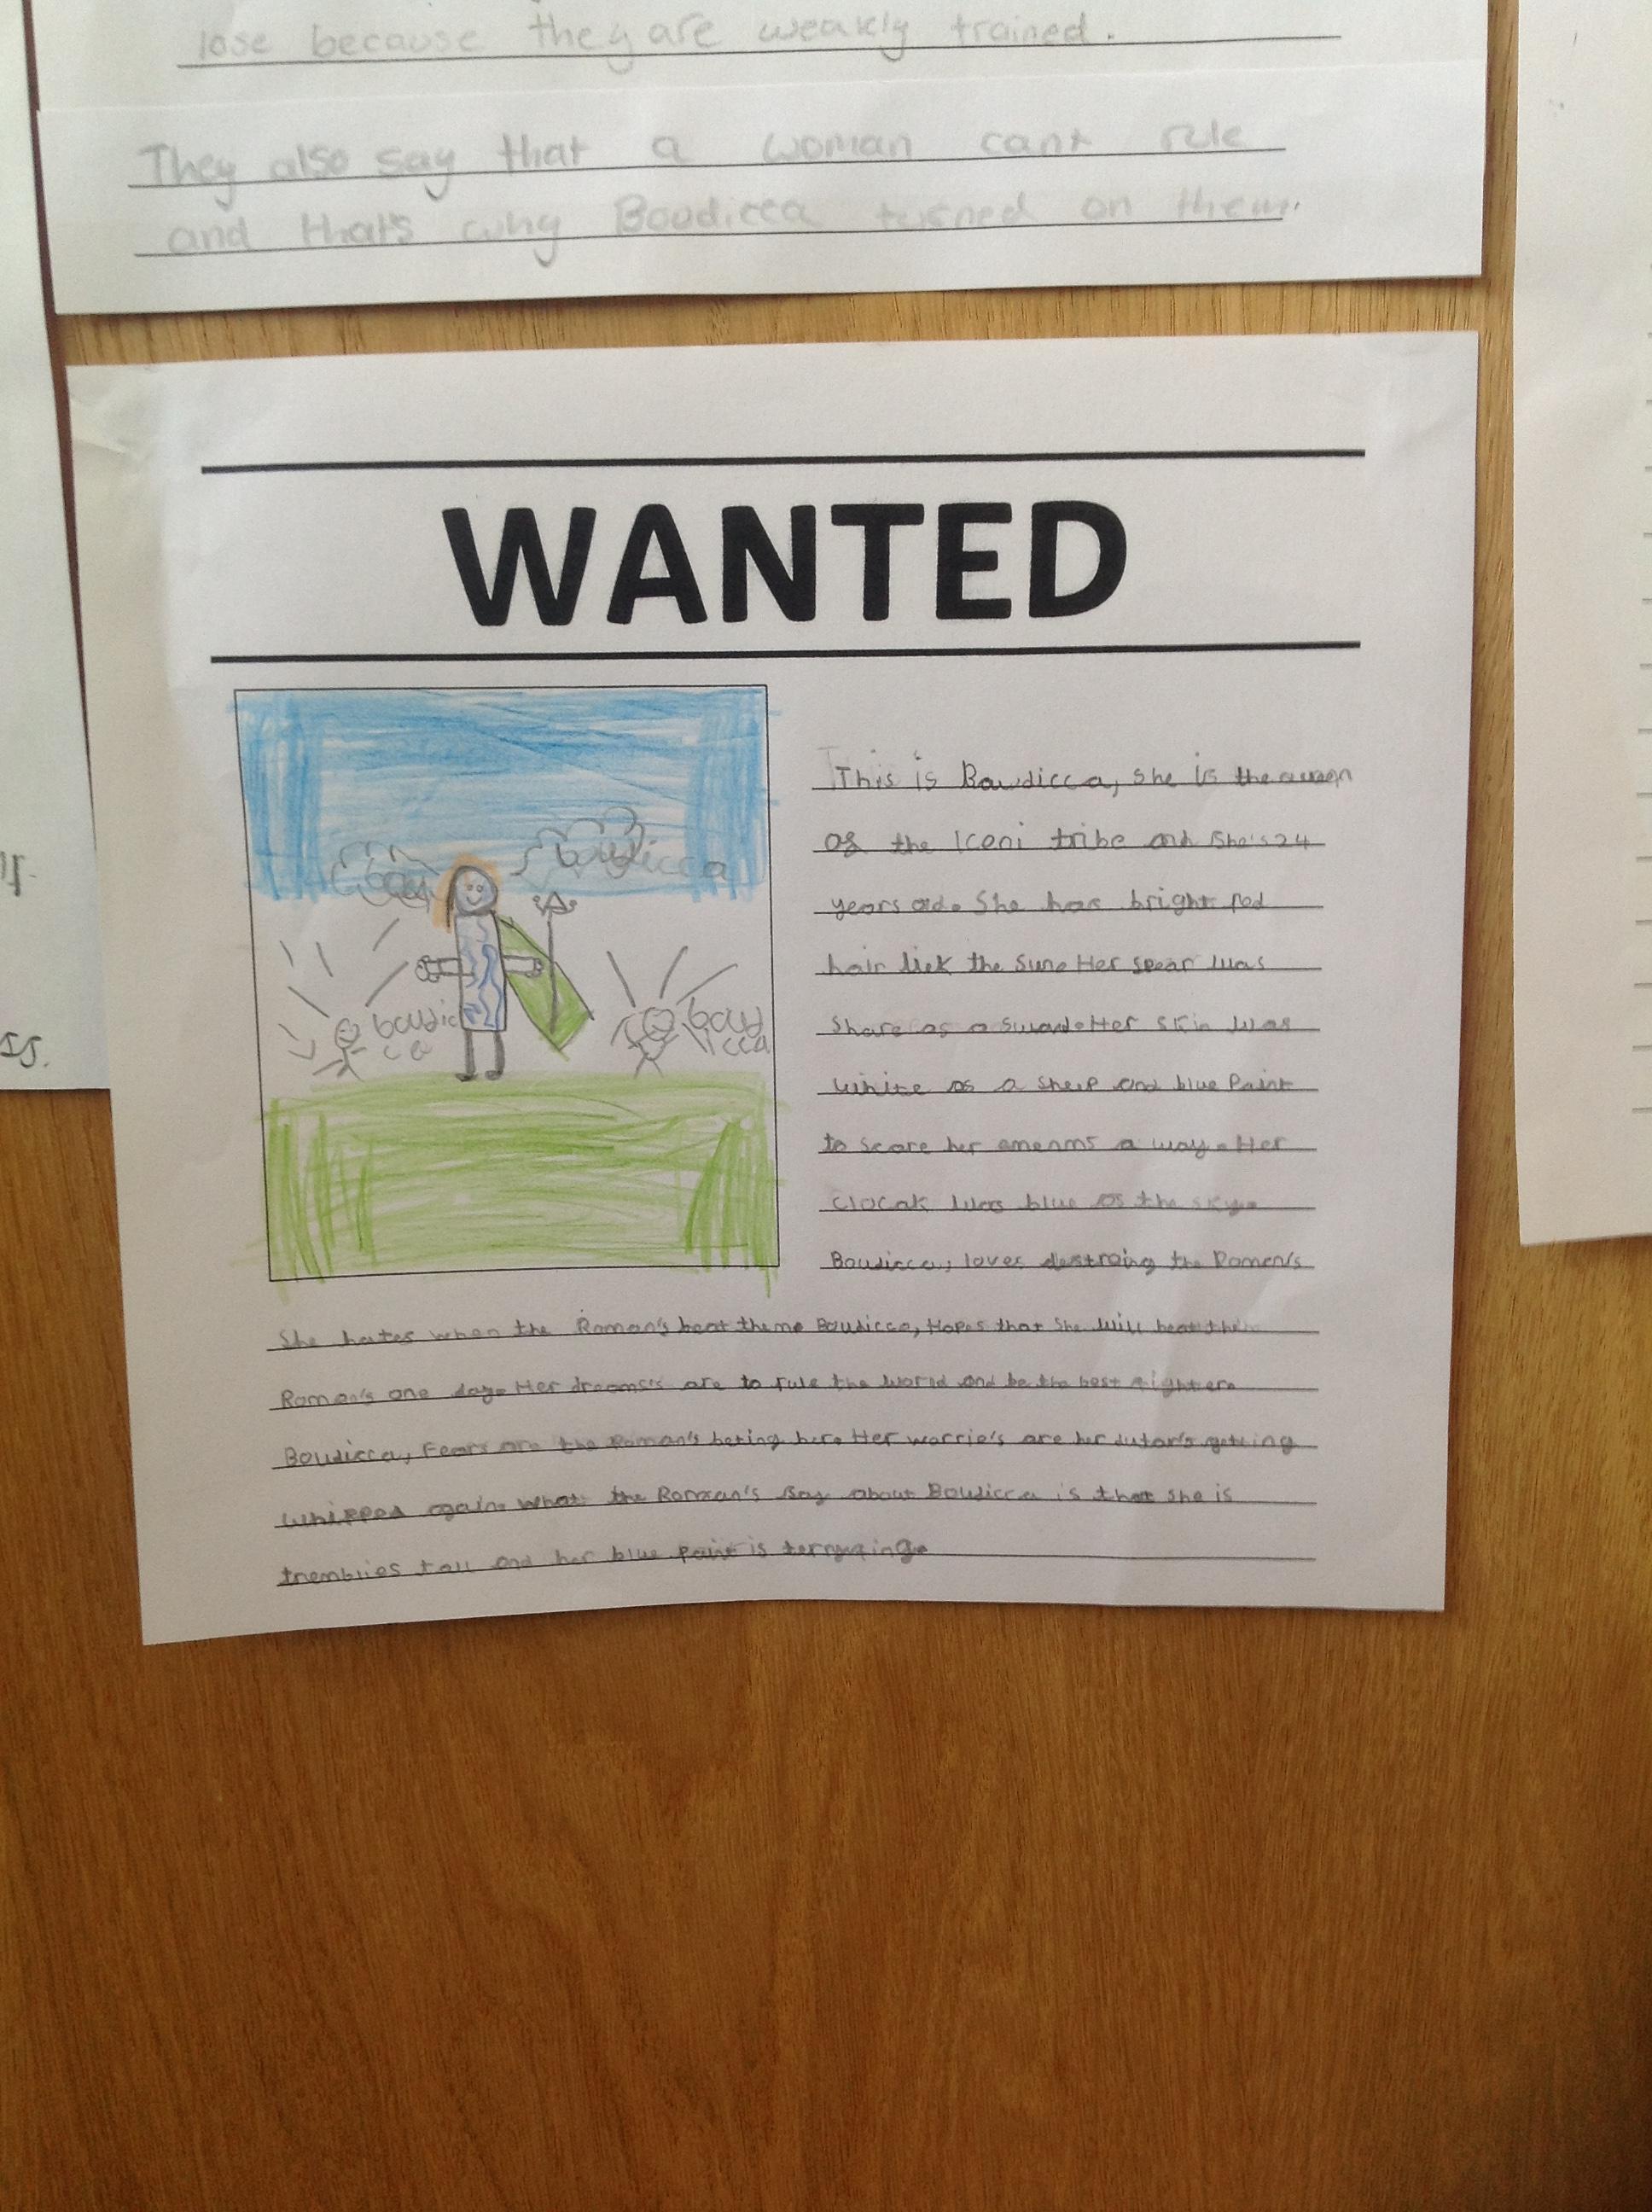 lose because they are weakly trained.
They also say that a woman cant rule
and thats why Boudicca turned on them.
WANTED
boudicca
boudic
ca
boud
icca
This is Boudicca, she is the queen
of the Iceni tribe and she's 24
years old. She has bright red
hair liek the sun. Her spear was
Share as a sward. Her skin was
white as a sheep and blue Paint
to scare her a way. Her
clocak was blue as the sky.
Boudicca, loves destroing the Roman's
She hates when the Roman's beat them. Boudicca, Hopes that she will beat the
Roman's one day. Her dreams's are to rule the world and be the best fighter.
Boudicca, Fears are the Roman's beting her. Her worrie's are her getting
whipped again. What the Roman's say about Boudicca is that she is
tall and her blue paint is